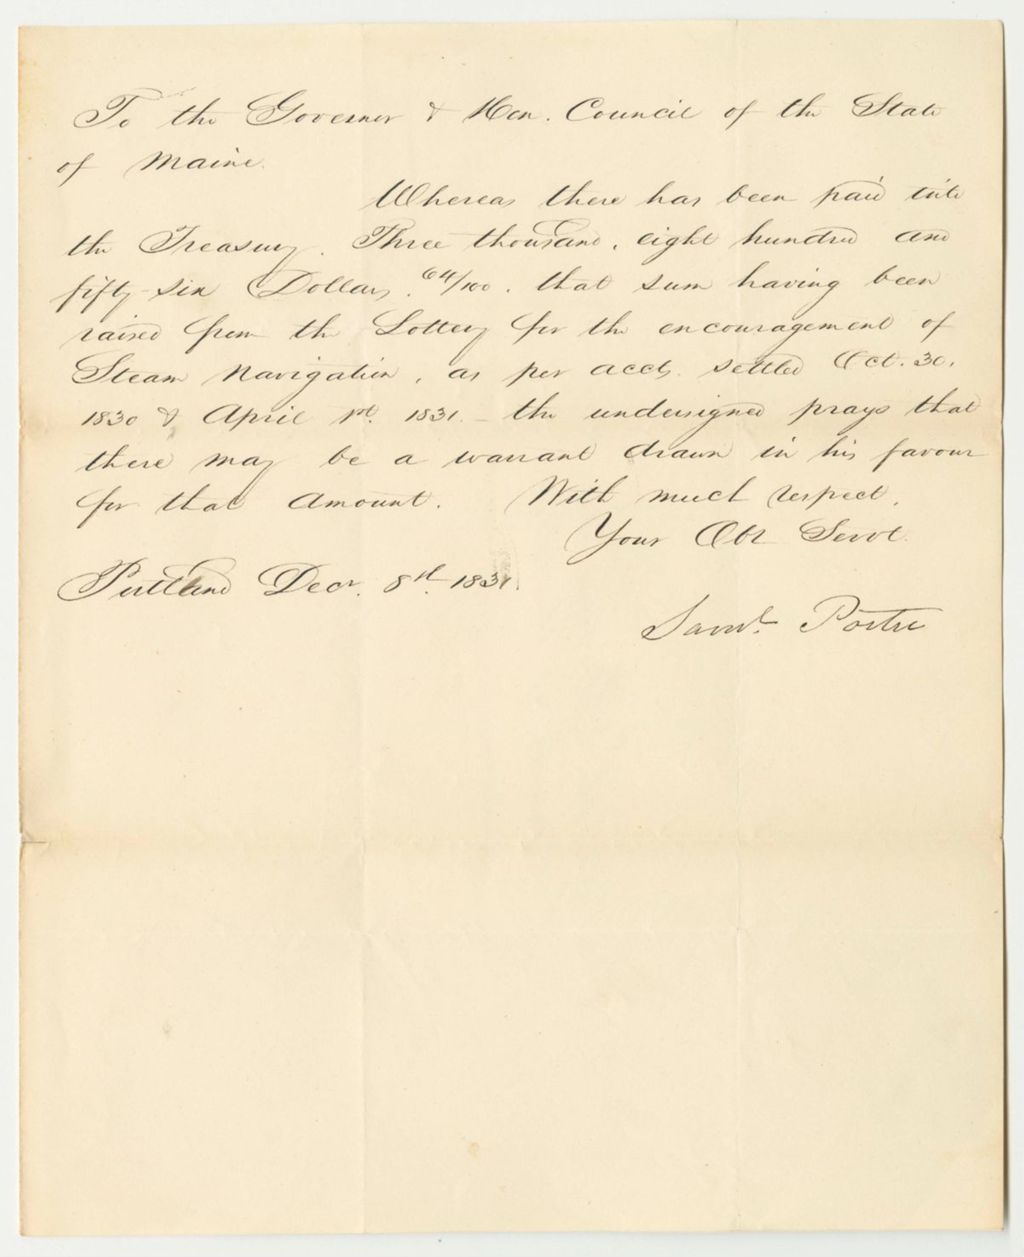 To the Governor & Hon. Council of the State
of Maine.
Whereas there has been paid into
the Treasury. Three thousand, eight hundred and
fifty-six Dollars, 64/100. that sum having been
raised from the Lottery for the encouragement of
Steam Navigation, as per accts. settled Oct. 30.
1830 & April 1st. 1831. – the undersigned prays that
there may be a warrant drawn in his favour
for that amount. With much respect.
Your Obt Servt.
Portland Decr. 8th. 1831.
Saml. Porter